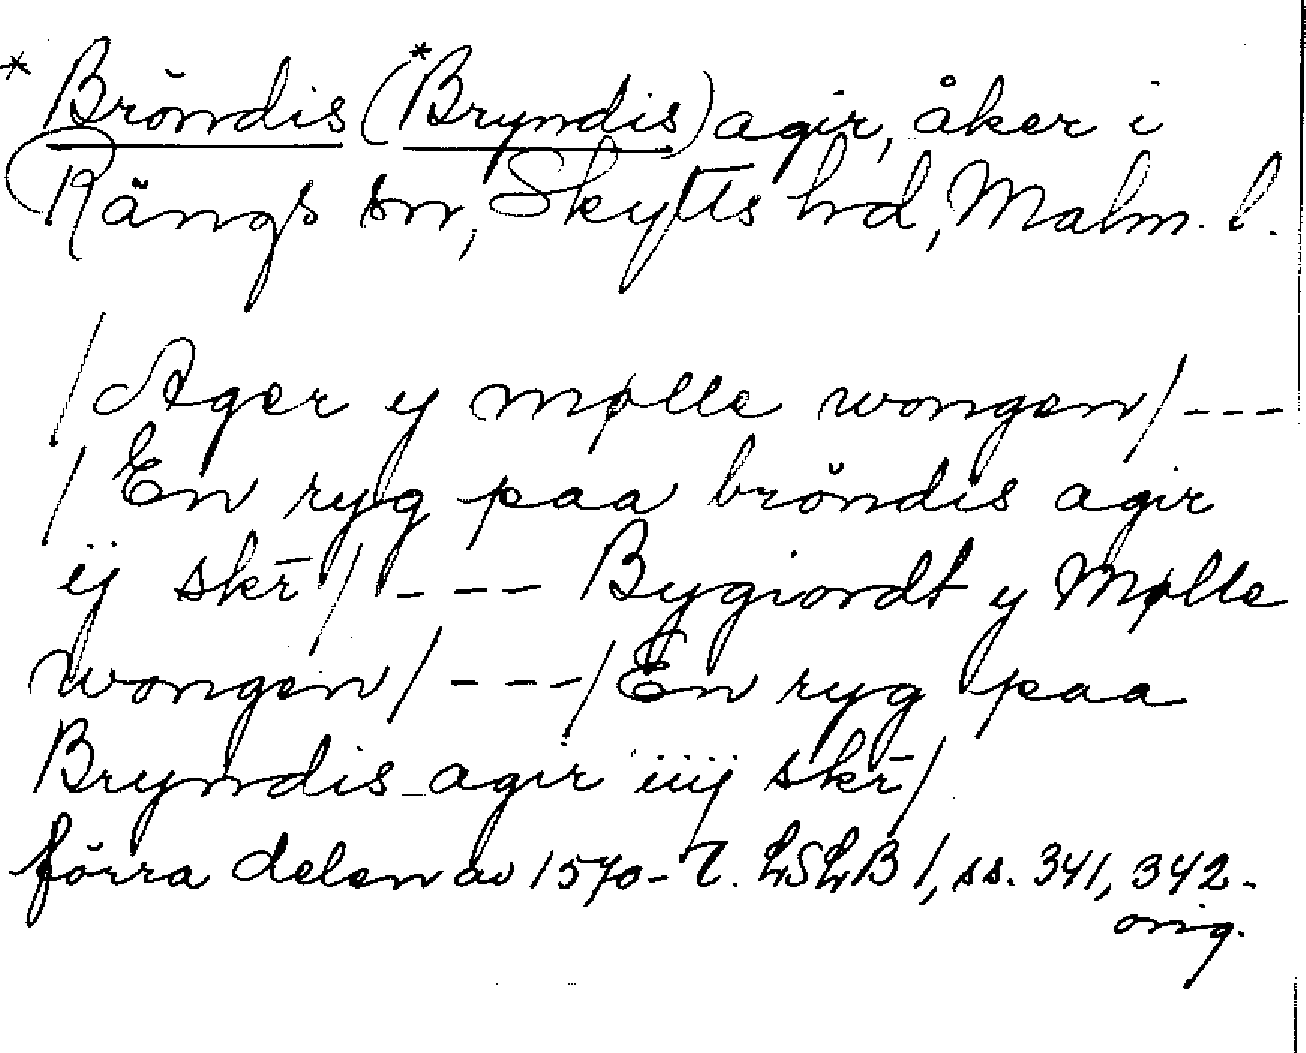 * Bröndis (*Bryndis) agir, åker i
Rängs sn, Skytts hd, Malm. l.
/Ager y mølle wongen/---
/En ryg paa bröndis agir
ij skr̄/--- Bygiordt y Mølle
wongen/---/En ryg paa
Bryndis agir iiij skr̄/
förra delen av 1570-t. LSLB 1, ss. 341, 342.
orig.